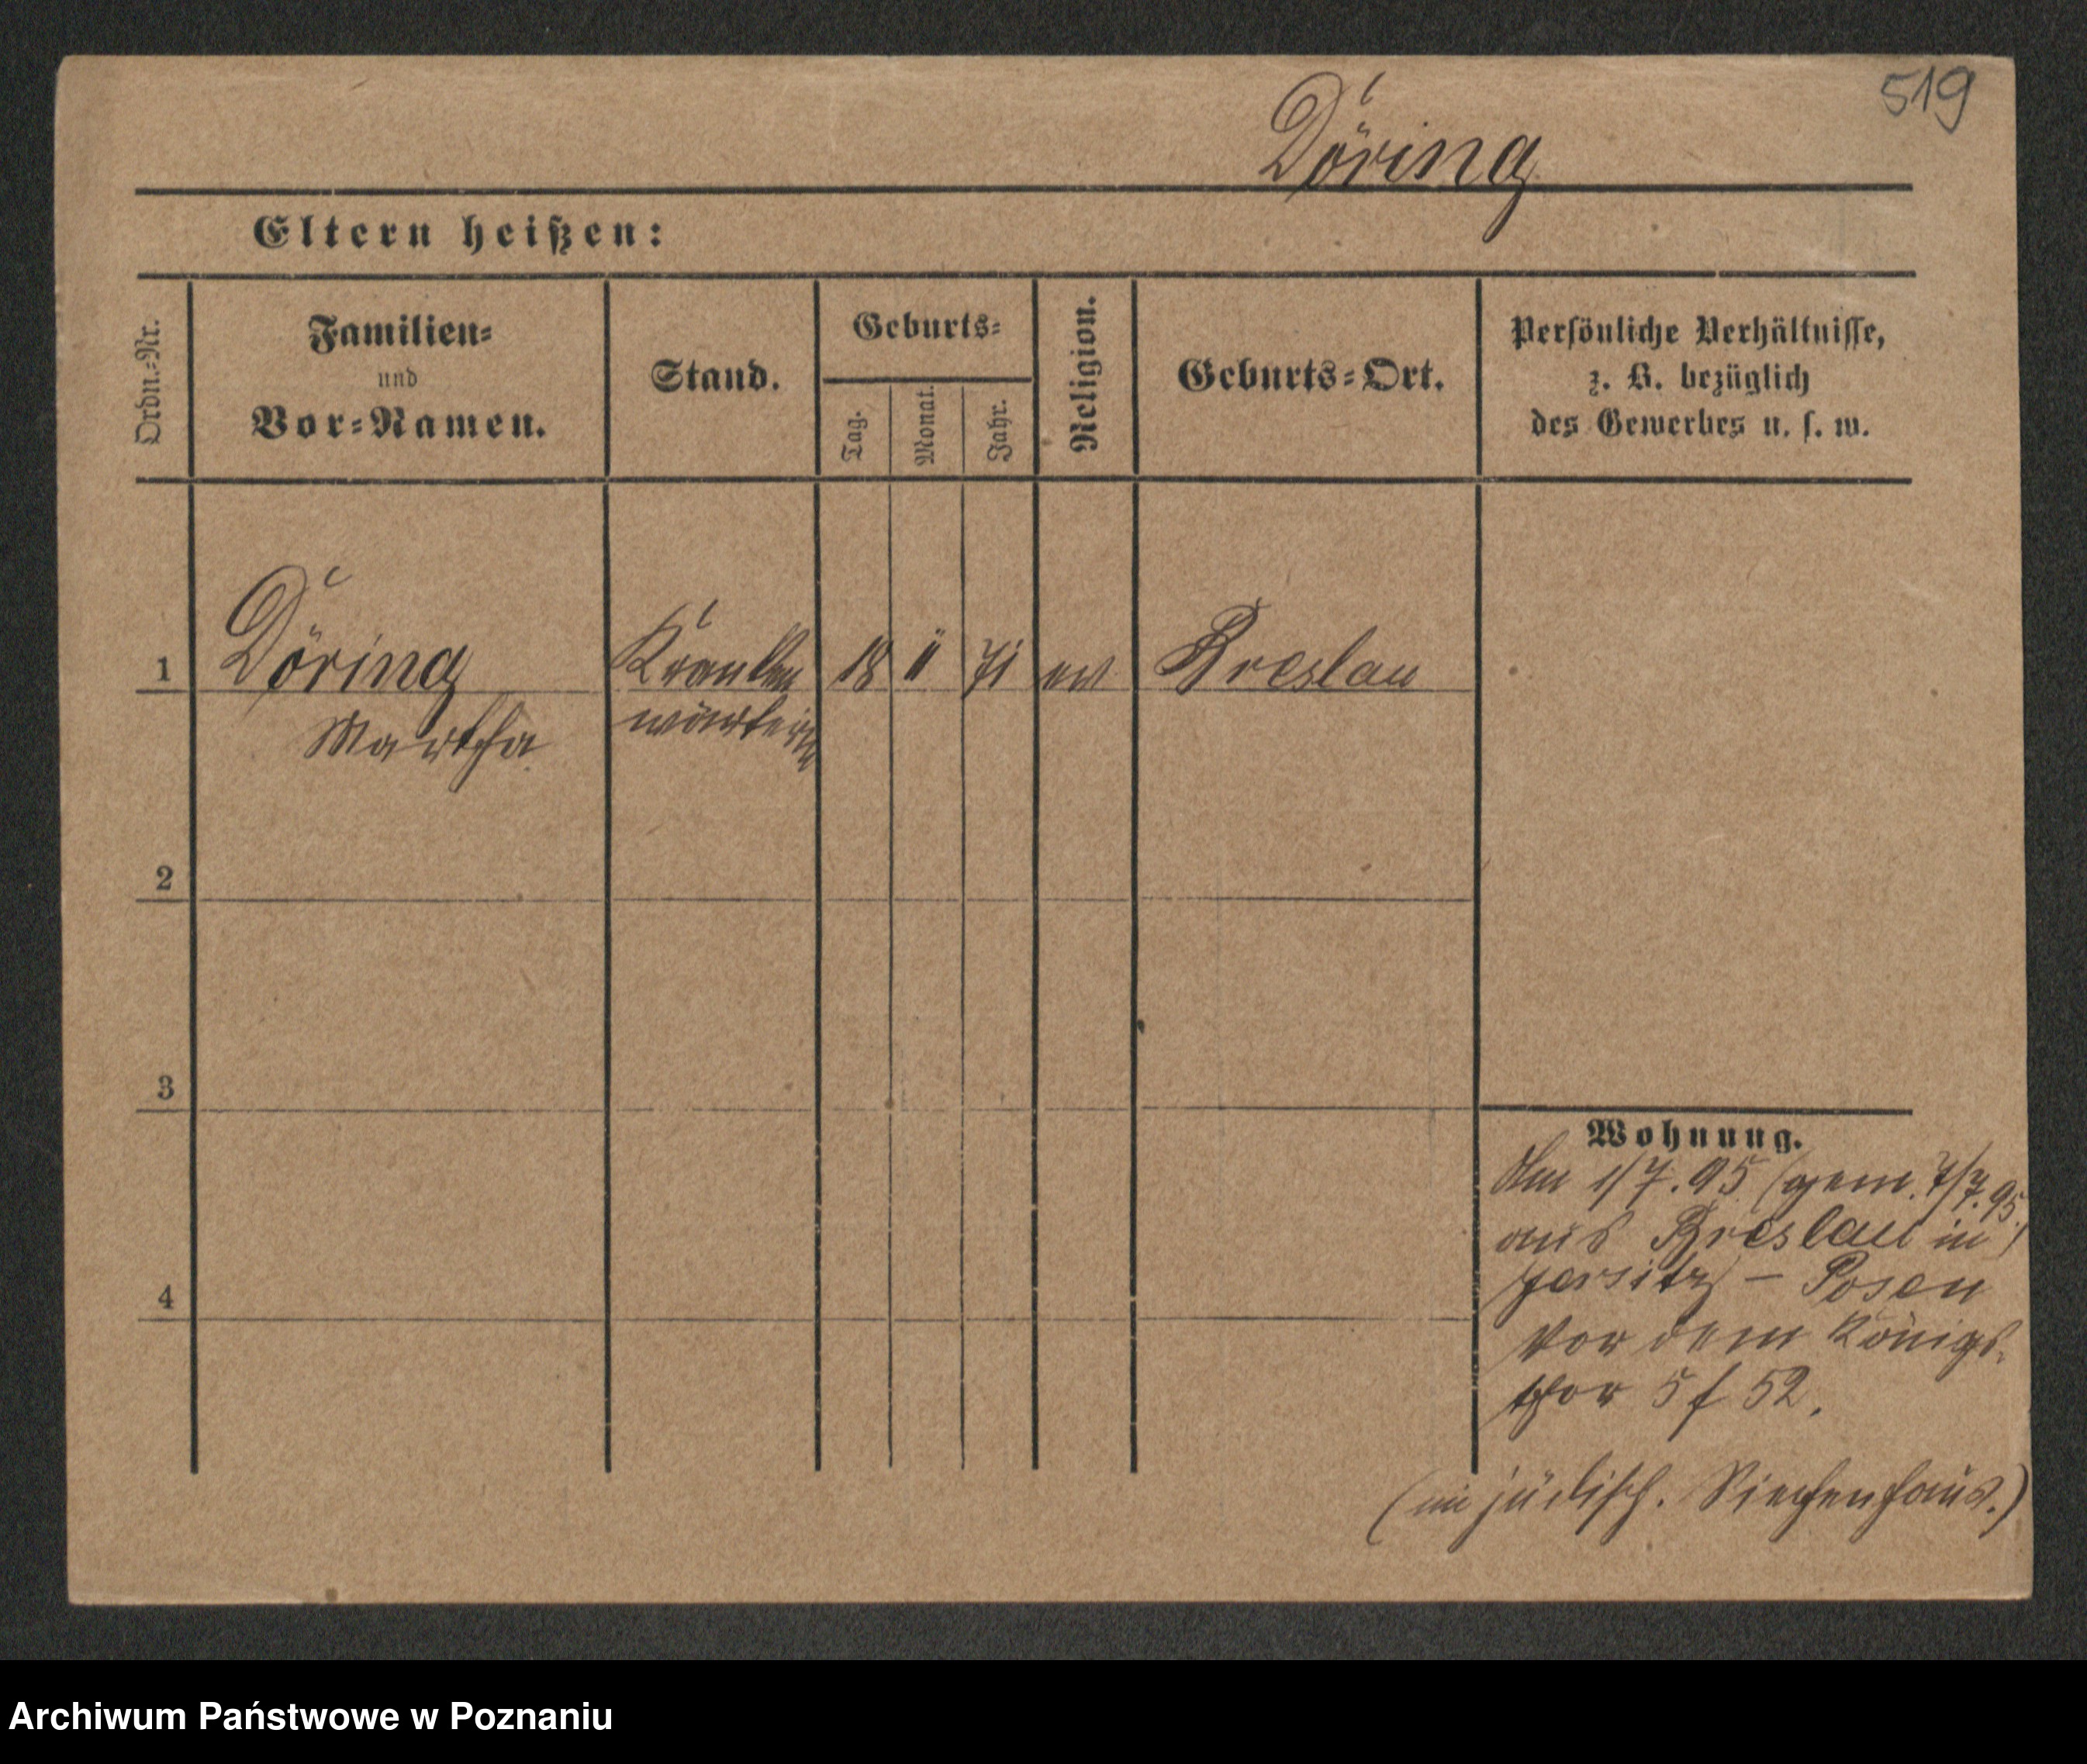 519
Döring
Eltern heißen:
Ordn.-Nr.
Familien-
und
Vor-Namen.
Stand.
Geburts-
Tag.
Monat.
Jahr.
Religion.
Geburts-Ort.
Persönliche Verhältnisse,
z. B. bezüglich
des Gewerbes u. s. w.
1 Döring Kranken 18 11 71 ev Breslau
Martha wärterin
2
3
4
Wohnung.
Am 1/7.95 (gem. 7/7.95.)
aus Breslau in
Jersitz - Posen
Vor dem Königs-
thor 5 f 52.
(im jüdisch. Siechenhaus.)
Archiwum Państwowe w Poznaniu